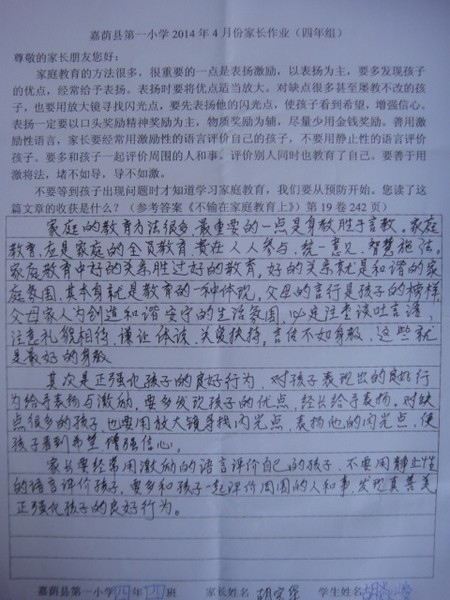 嘉荫县第一小学 2014 年 4 月份家长作业（四年组）
尊敬的家长朋友您好：
家庭教育的方法很多，很重要的一点是表扬激励，以表扬为主，要多发现孩子
的优点，经常给于表扬。表扬时要将优点适当放大。对缺点很多甚至屡教不改的孩
子，也要用放大镜寻找闪光点，要先表扬他的闪光点，使孩子看到希望，增强信心。
表扬一定要以口头奖励精神奖励为主，物质奖励为辅，尽量少用金钱奖励。善用激
励性语言，家长要经常用激励性的语言评价自己的孩子，不要用静止性的语言评价
孩子。要多和孩子一起评价周围的人和事。评价别人同时也教育了自己。要善于用
激将法，堵不如导，导不如激。
不要等到孩子出现问题时才知道学习家庭教育，我们要从预防开始。您读了这
篇文章的收获是什么？（参考答案《不输在家庭教育上》）第 19 卷 242 页）
家庭的教育方法很多，最重要的一点是身教胜于言教。家庭
教育，应是家庭的全员教育，贵在人人参与，统一意见，智慧施法。
家庭教育中好的关系胜过好的教育，好的关系就是和谐的家
庭氛围，其本身就是教育的一种体现，父母的言行是孩子的榜样，
父母家人为创造和谐安宁的生活氛围，必定注重谈吐言语，
注意礼貌相待，谦让体谅，关爱扶持，言传不如身教，这些就
是最好的身教
其次是正强化孩子的良好行为，对孩子表现出的良好行
为给予表扬与激励，要多发现孩子的优点，经长给予表扬。对缺
点很多的孩子也要用放大镜寻找闪光点，表扬他的闪光点，使
孩子看到希望增强信心。
家长要经常用激励的语言评价自己的孩子，不要用静止性
的语言评价孩子，要多和孩子一起评价周围的人和事，发现真善美
正强化孩子的良好行为。
嘉荫县第一小学四年四班 家长姓名 胡 学生姓名 胡